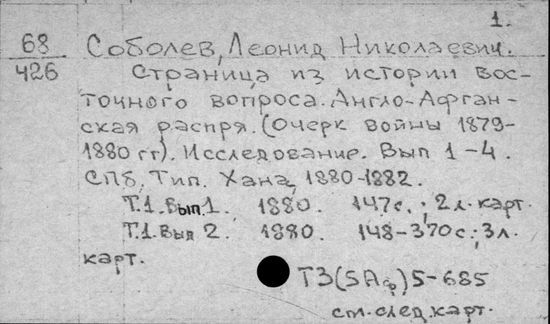 1.
68
426
Соболев, Леонид Николаевич.
Страница из истории вос-
точного вопроса. Англо-Афган-
ская распря. (Очерк войны 1879-
1880 гг). Исследование. Вып 1-4.
СПб, Тип. Хана, 1880-1882.
Т.1. Вып.1. 1880. 147с.; 2 л. карт.
Т.1. Вып 2. 1880. 148-370с.; 3л.
карт.
Т3(5Аф)5-685
см. след. карт.